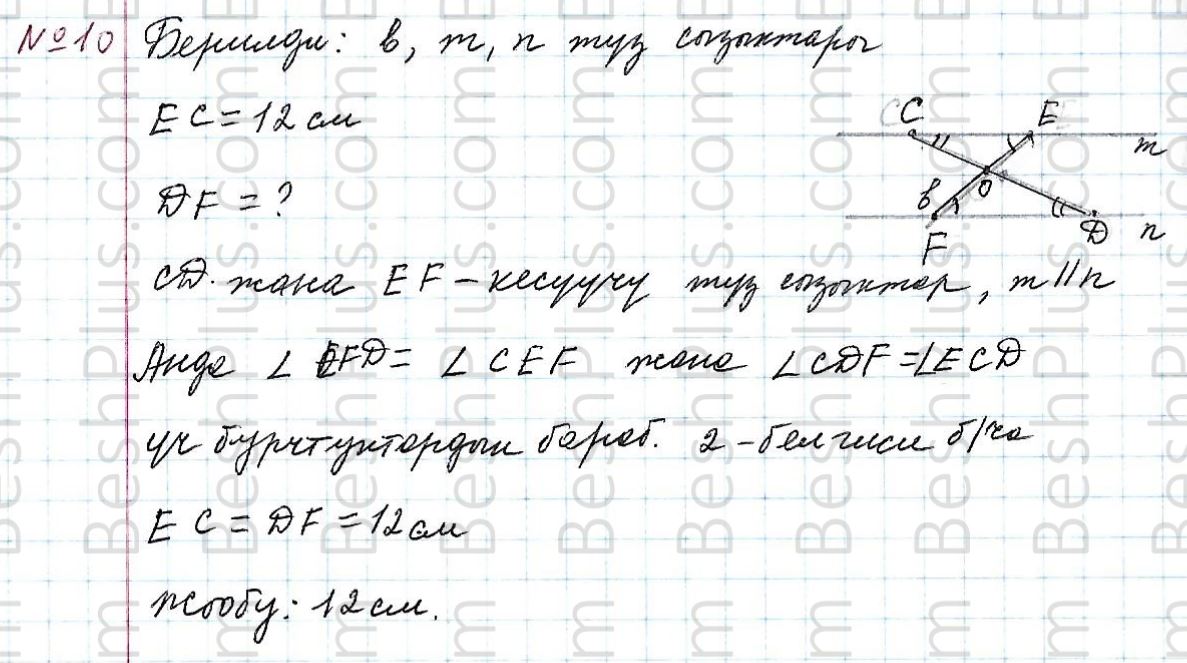 №10 Берилди: в, m, n туз сызыктары
EC = 12 см
C E
m
DF = ?
в O
F D n
CD. жана EF – кесуучу туз сызыктар, m || n
Анда ∠ EFD = ∠ CEF жана ∠CDF = ∠ECD
уч бурчтуктардын бараб. 2 - белгиси б/ча
EC = DF = 12 см
жообу: 12 см.
BeshPlus.com